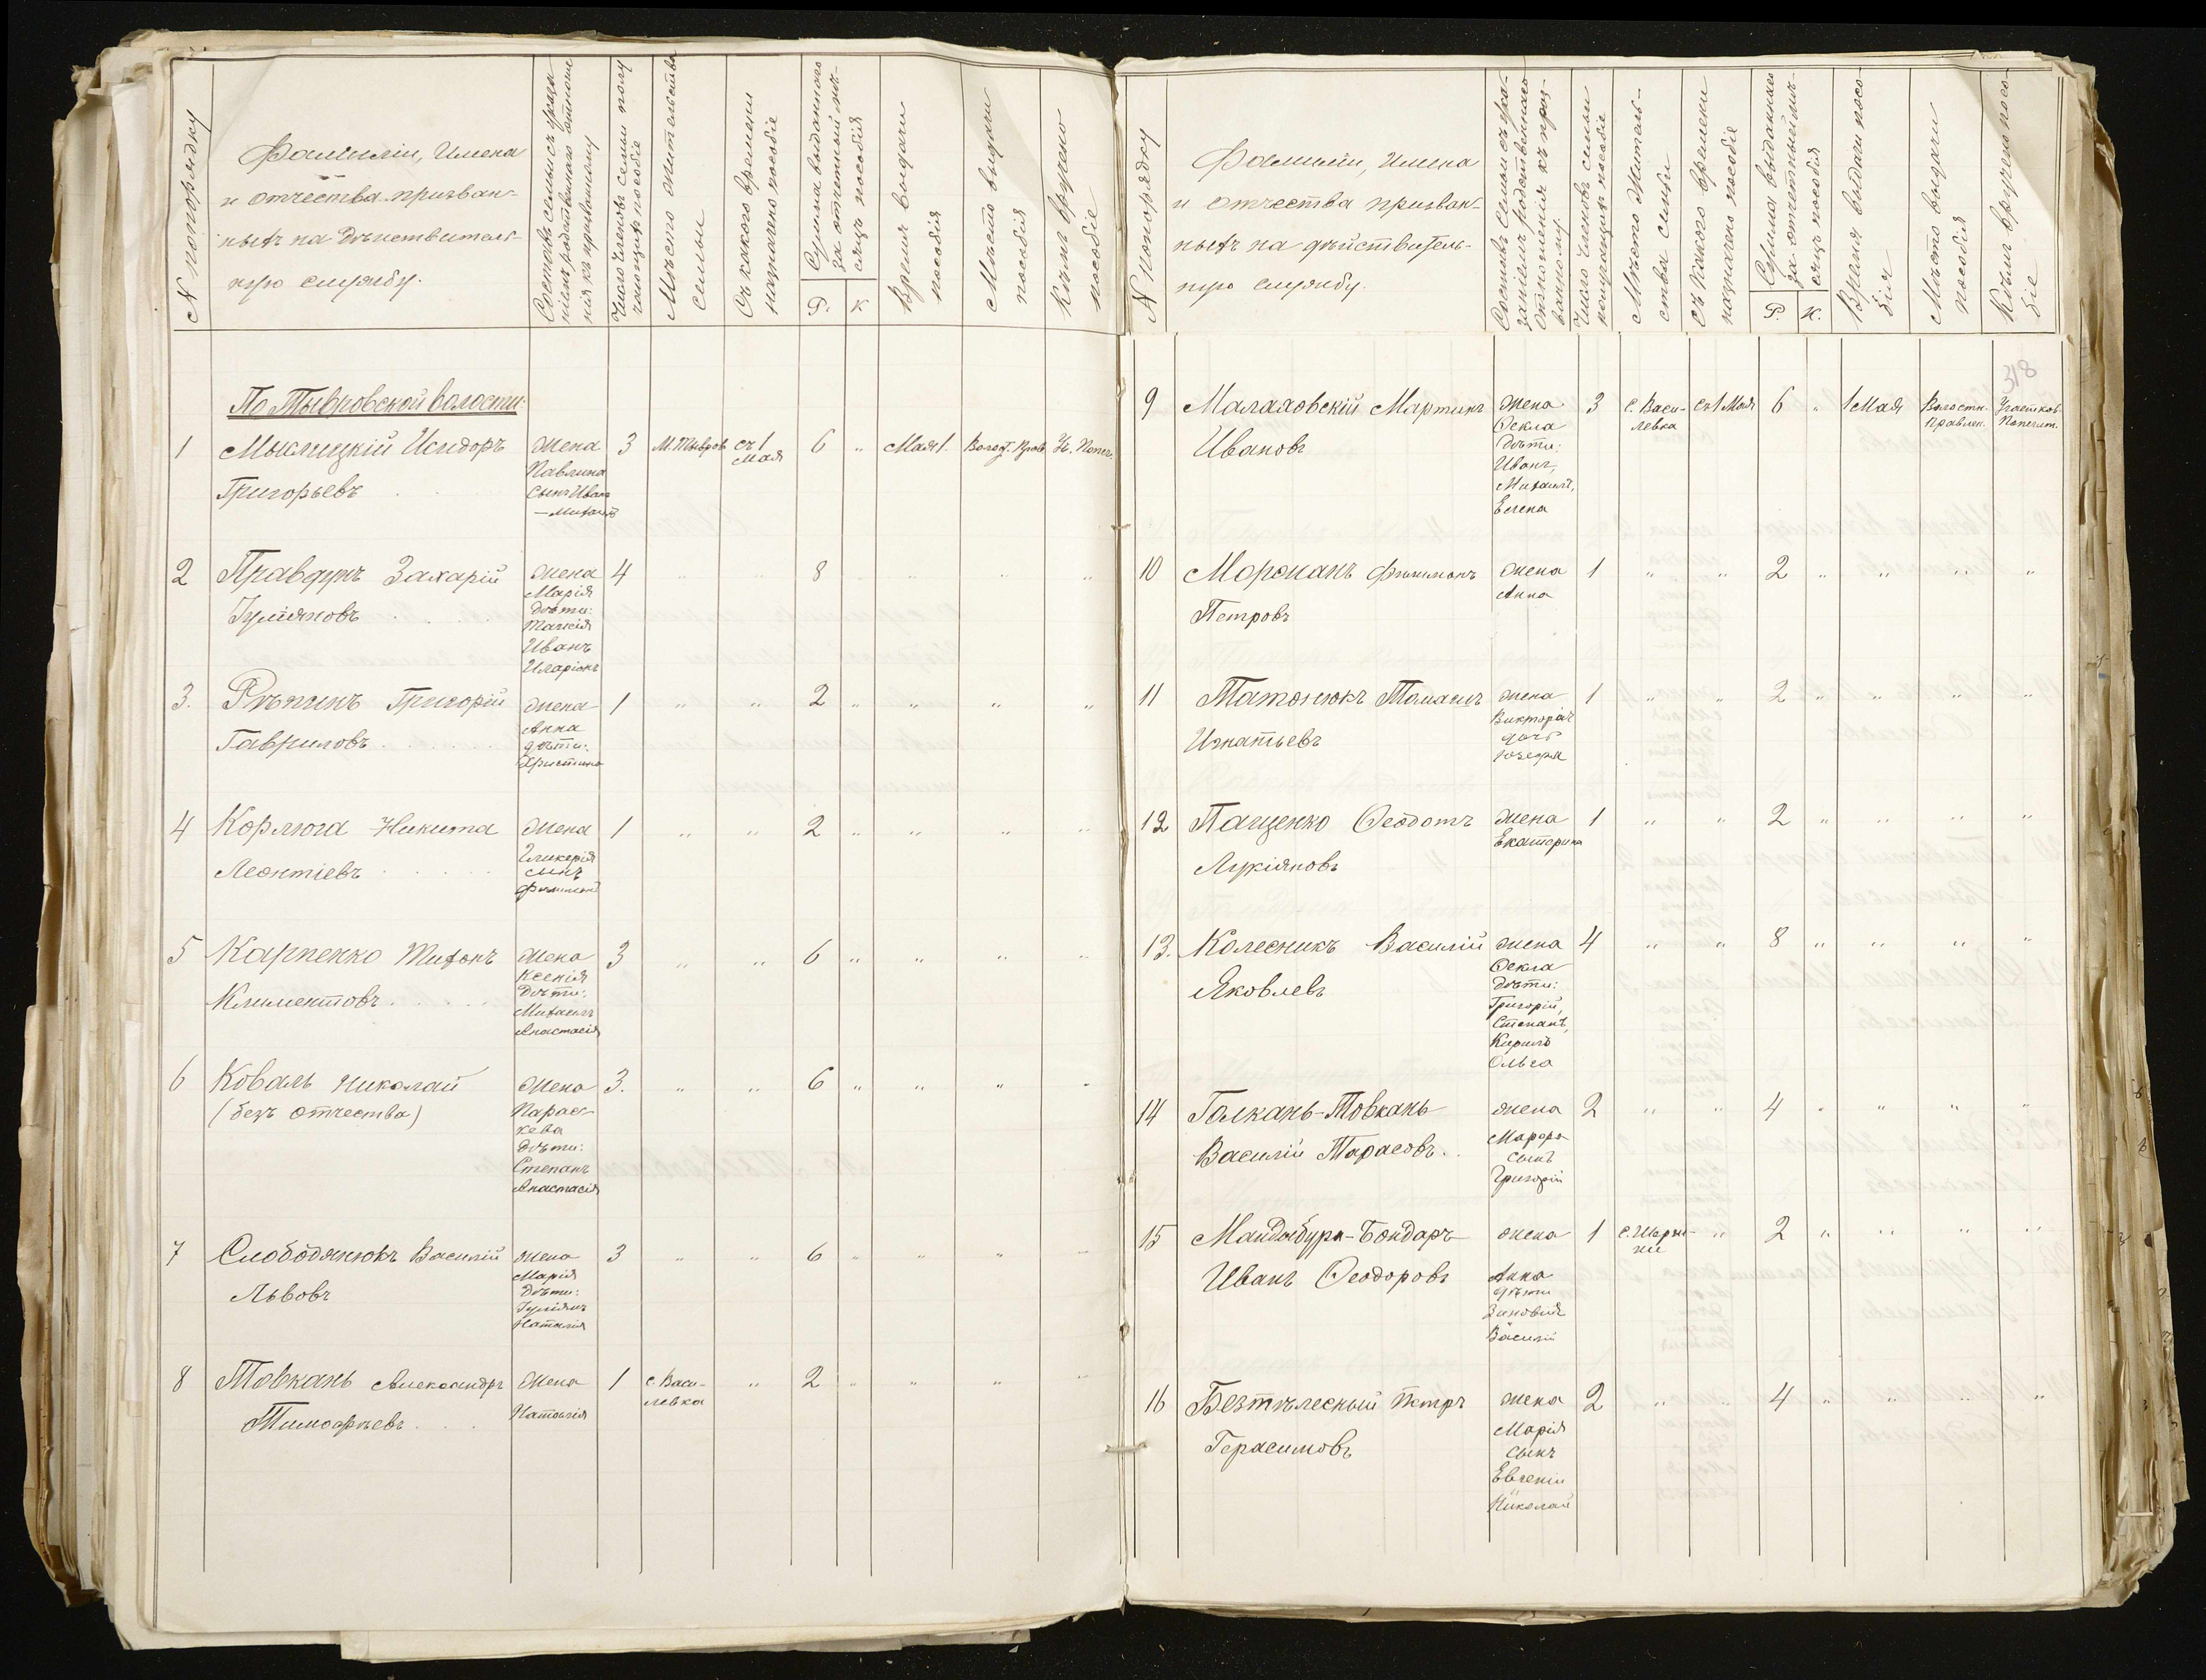 № по порядку
Фамиліи, Имена
и отчества призван-
ныхъ на дѣйствитель-
ную службу.
Составъ семьи съ указа
ніемъ родственнаго отноше
нія къ призванному
Число членовъ семьи полу
чающихъ пособіе
Мѣсто жительства
семьи
Съ какого времени
назначено пособіе
Сумма выданнаго
за отчетный мѣ-
сяцъ пособія
Р.
К
Время выдачи
пособія
Мѣсто выдачи
пособія
Кѣмъ вручено
пособіе
По Тывровской волости:
1 Мыслицкій Исидоръ жена 3 М. Тывровъ съ 1 6 " Мая 1. Волост. Прав. Уч. Попеч.
Мая
Григорьевъ Павлина
сынъ Иванъ
— Михаилъ
2 Правдунъ Захарій жена 4 " " 8 " " "
Гуліяновъ Марія
дѣти:
Таисія
Иванъ
Иларіонъ
3. Рѣпинъ Григорій жена 1 " " 2 " " " "
Гавриловъ Анна
дѣти:
Христина
4 Корлюга Никита жена 1 " " 2 " " " "
Леонтіевъ Гликерія
сынъ
Филимонъ
5 Карпенко Тихонъ жена 3 " " 6 " " " "
Климентовъ Ксенія
дѣти:
Михаилъ
Анастасія
6 Коваль Николай жена 3. " " 6 " " " "
(безъ отчества) Парас-
кева
дѣти:
Степанъ
Анастасія
7 Слободянюкъ Василій жена 3 " " 6 " " " "
Львовъ Марія
дѣти:
Гуліянъ
Наталія
8 Товкань Александръ жена 1 с. Васи- " 2 " " " "
левка
Тимофѣевъ Наталія
№ по порядку
Фамиліи, Имена
и отчества призван-
ныхъ на дѣйствитель-
ную службу.
Составъ семьи съ ука-
заніемъ родственнаго
отношенія къ приз-
ванному.
Число членовъ семьи
получающихъ пособіе
Мѣсто житель-
ства семьи
Съ какого времени
назначено пособіе
Сумма выданнаго
за отчетный мѣ-
сяцъ пособія
Р.
К.
Время выдачи посо-
бія
Мѣсто выдачи
пособія
Кѣмъ вручено посо-
біе
318
9 Малаховскій Мартинъ жена 3 с. Васи- съ 1 Мая 6 " 1 Мая Волостн. Участков.
левка Правлен. Попечит.
Ивановъ Ѳекла
дѣти:
Иванъ,
Михаилъ,
Елена
10 Морожанъ Филимонъ жена 1 " " 2 " " " "
Петровъ Анна
11 Татонюкъ Томашъ жена 1 " " 2 " " " "
Игнатьевъ Викторія
дочь
Юзефа
12 Пащенко Ѳеодотъ жена 1 " " 2 " " " "
Лукіяновъ Екатерина
13. Колесникъ Василій жена 4 " " 8 " " " "
Яковлевъ Ѳекла
дѣти:
Григорій,
Степанъ,
Кирилъ
Ольга
14 Голкань-Товкань жена 2 " " 4 " " " "
Василій Тарасовъ Марфа
сынъ
Григорій
15 Мандыбура-Бондарь жена 1 " 2 " " " "
Иванъ Ѳеодоровъ Анна
дѣти
Зиновия
Василій
16 Безтѣлесный Петръ жена 2 " " 4 " " " "
Герасимовъ Марія
сынъ
Евгеній
Николай